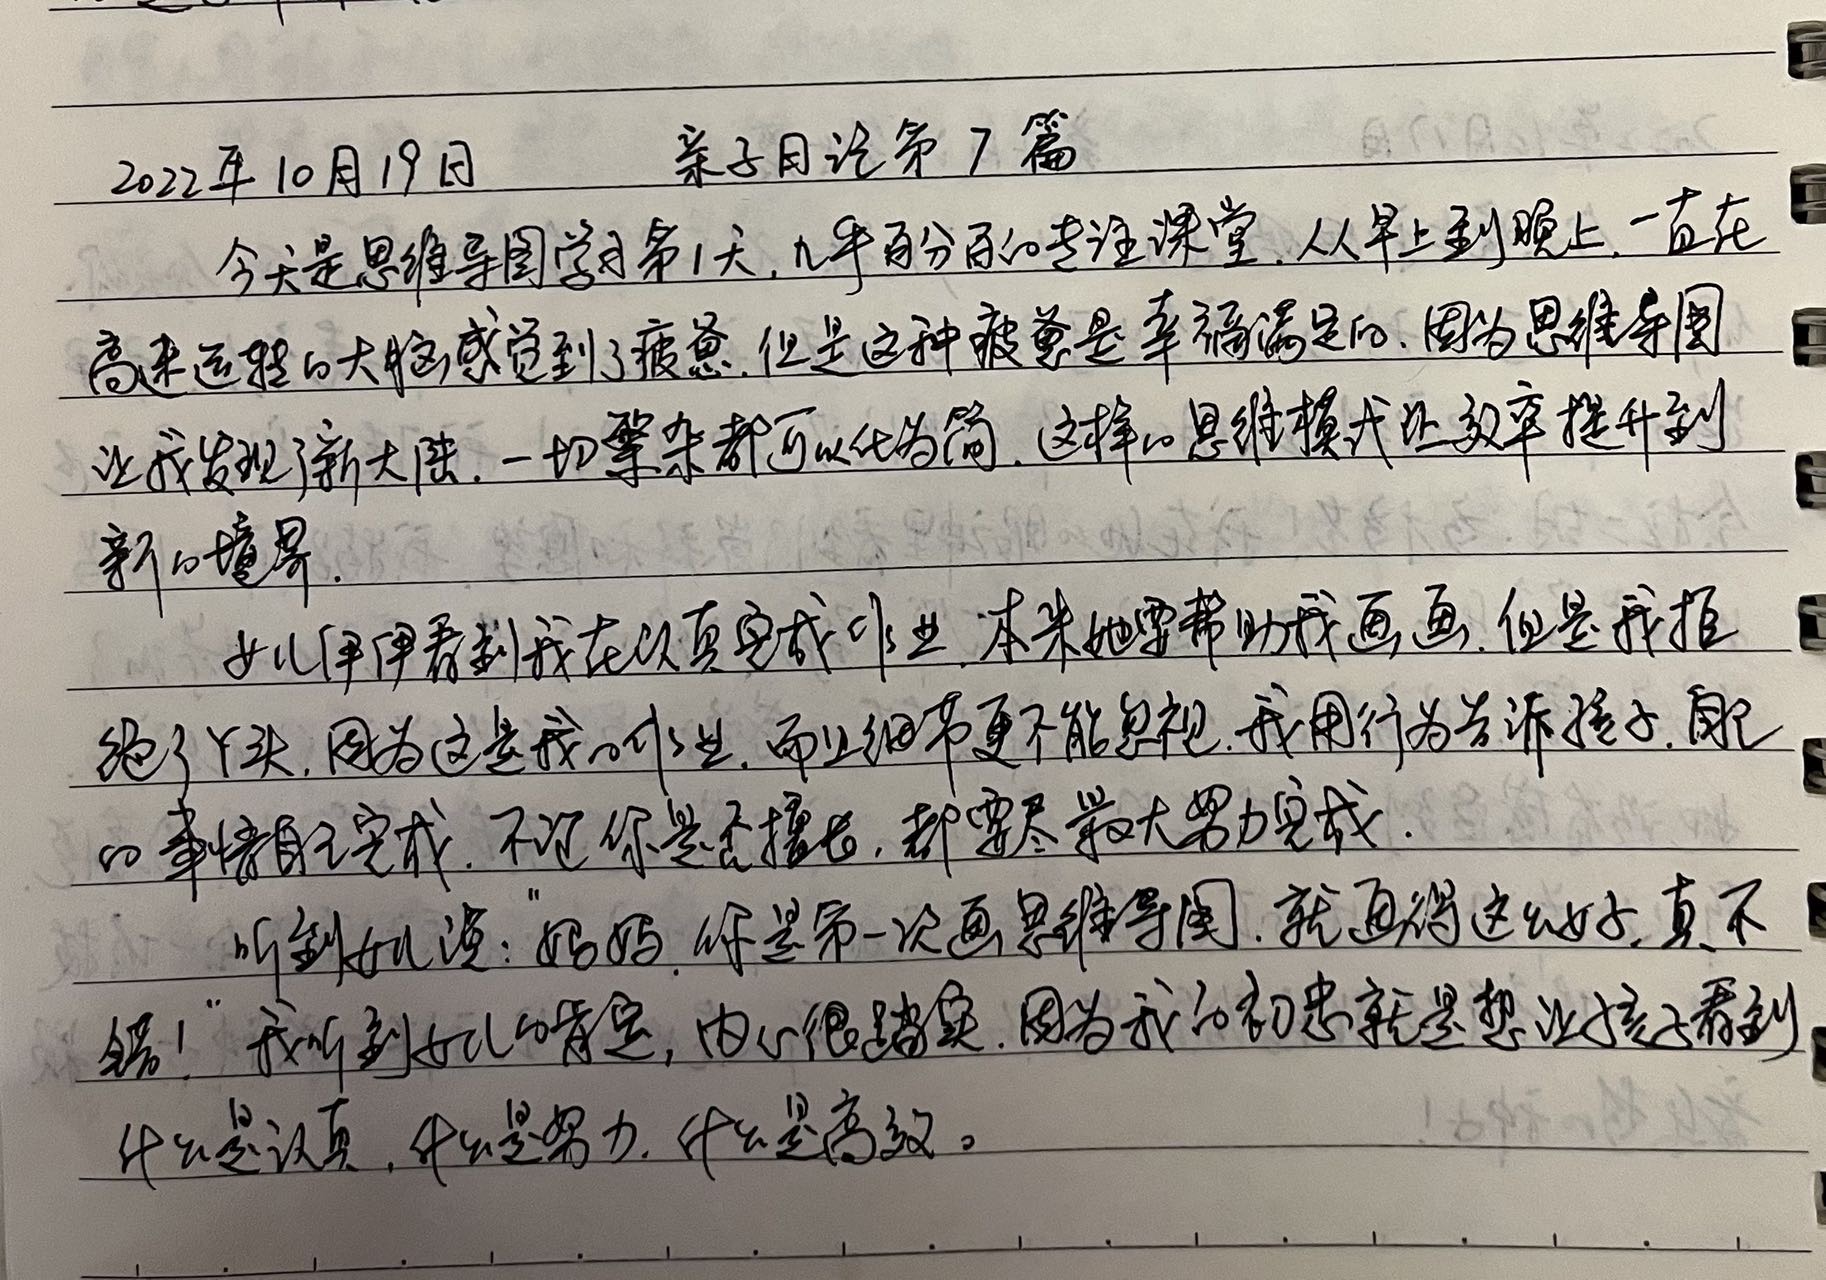 2022年10月19日 亲子日记第7篇
今天是思维导图学习第1天,几乎百分百的专注课堂,从早上到晚上,一直在
高速运转的大脑感觉到了疲惫,但是这种疲惫是幸福满足的、因为思维导图
让我发现了新大陆,一切繁杂都可以化为简,这样的思维模式让效率提升到
新的境界.
女儿伊伊看到我在认真完成作业,本来她要帮助我画画,但是我拒
绝了丫头,因为这是我的作业,而且细节更不能忽视,我用行为告诉孩子,自己
的事情自己完成,不论你是否擅长,都要尽最大努力完成.
听到女儿说:"妈妈,你是第一次画思维导图,就画得这么好,真不
错!"我听到女儿的肯定,内心很踏实,因为我的初衷就是想让孩子看到
什么是认真,什么是努力,什么是高效。